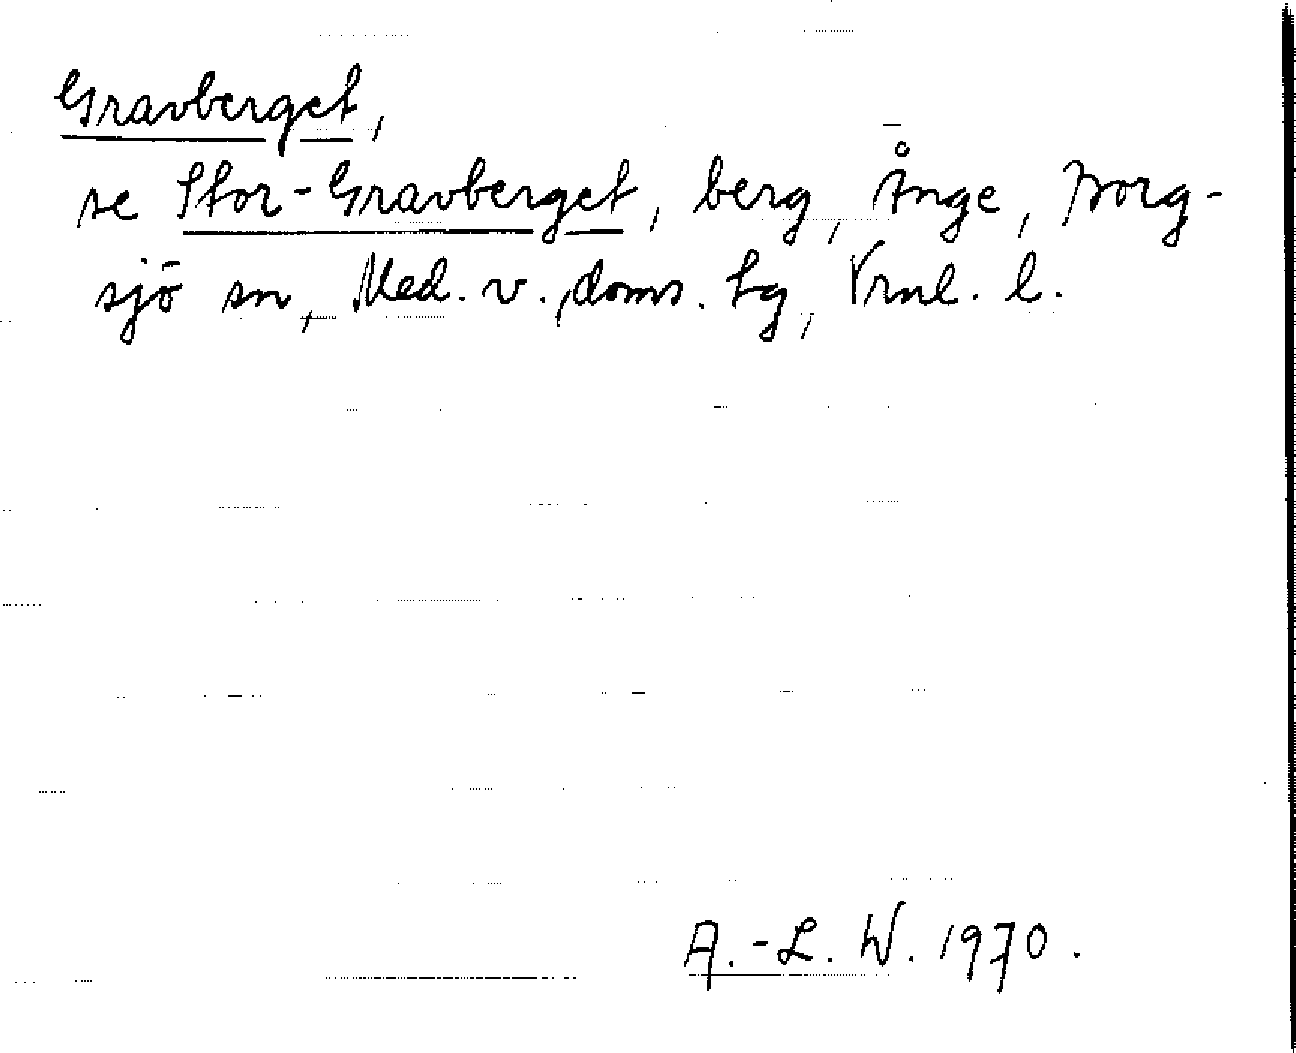 Gravberget,
se Stor-Gravberget, berg, Ånge, Borg-
sjö sn, Med. v., doms. tg, Vrnl. l.
A.-L. W. 1970.